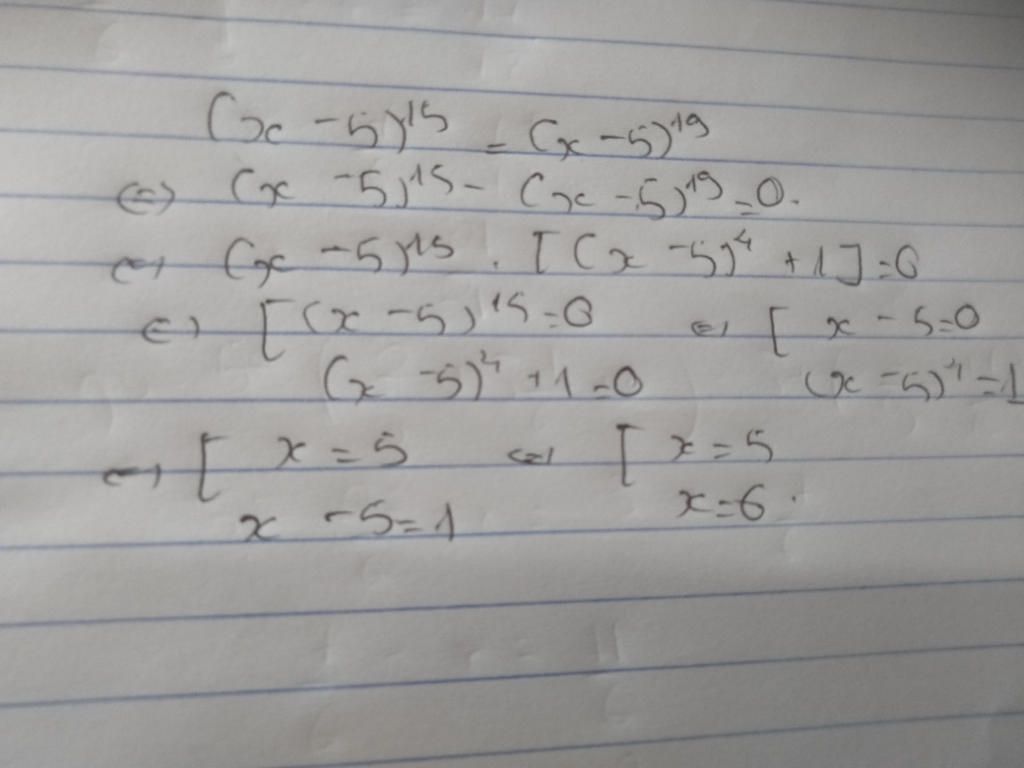 (x - 5)¹⁵ = (x - 5)¹⁹
⇔ (x - 5)¹⁵ - (x - 5)¹⁹ = 0.
⇔ (x - 5)¹⁵ . [(x - 5)⁴ + 1] = 0
⇔ [ (x - 5)¹⁵ = 0 ⇔ [ x - 5 = 0
(x - 5)⁴ + 1 = 0 (x - 5)⁴ = 1
⇔ [ x = 5 ⇔ [ x = 5
x - 5 = 1 x = 6.